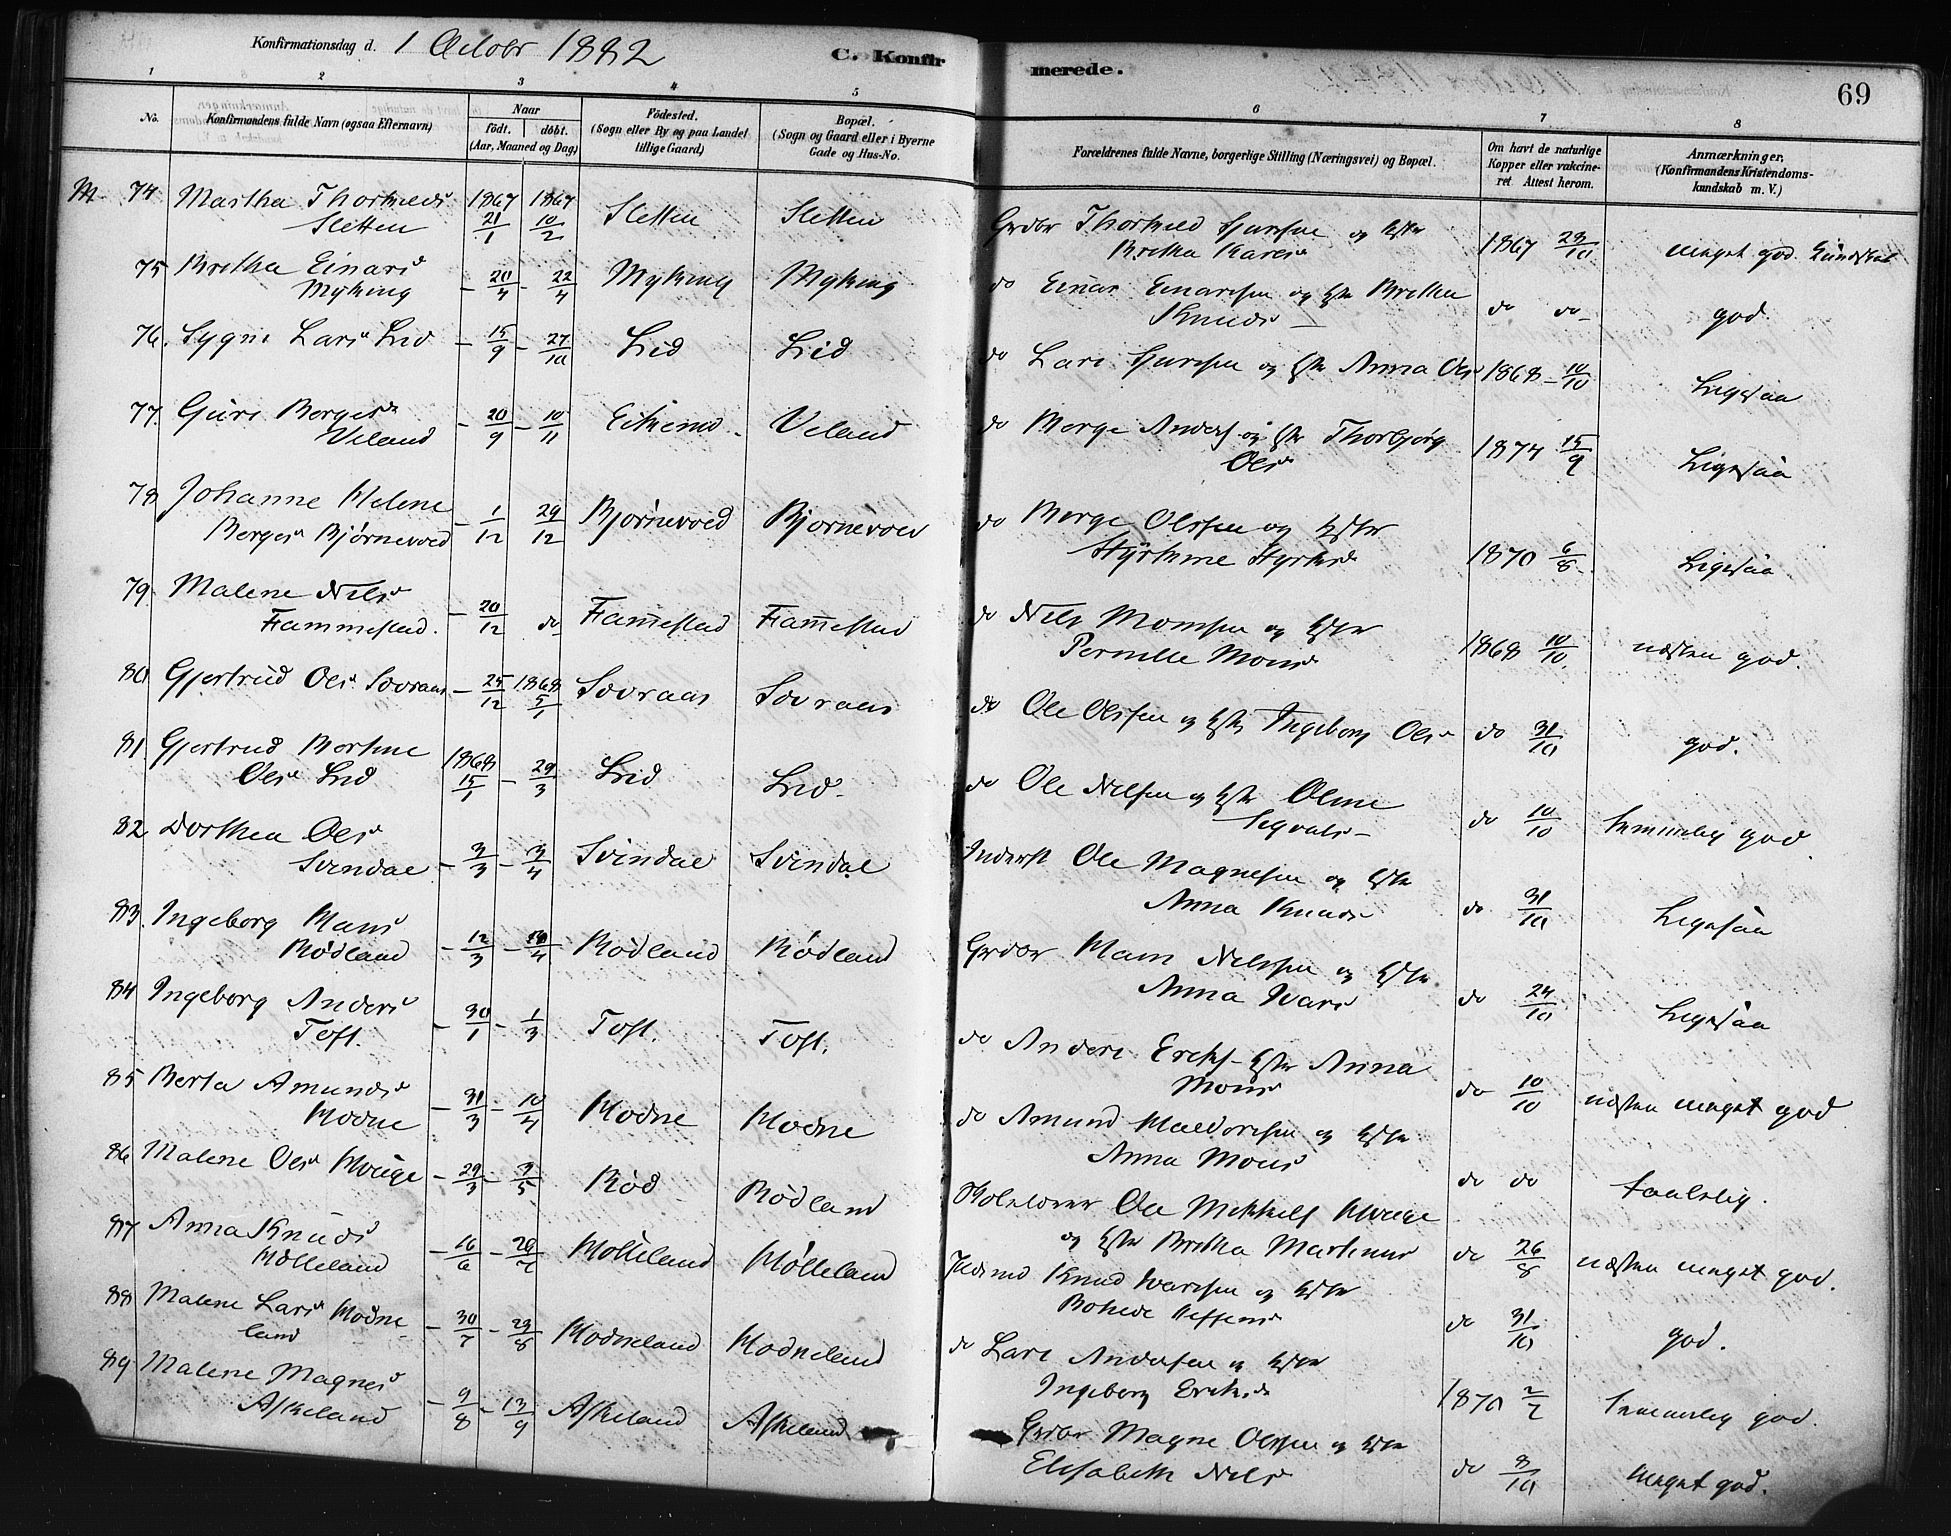 Konfirmationsdag d. 1 Octobr 1882
C. Konfirmerede.
69
1 2 3 4 5 6 7 8
No.
Konfirmandens fulde Navn (ogsaa Efternavn)
Naar
født. døbt.
(Aar, Maaned og Dag)
Fødested.
(Sogn eller By og paa Landet
tillige Gaard)
Bopæl.
(Sogn og Gaard eller i Byerne
Gade og Hus-No.
Forældrenes fulde Navne, borgerlige Stilling (Næringsvei) og Bopæl.
Om havt de naturlige
Kopper eller vakcine-
ret Attest herom.
Anmærkninger,
(Konfirmandens Kristendoms-
kundskab m. V.)
74 Martha Thorkelds 1867 1867
Sletten 21/1 10/2 Sletten Sletten
Grdbr Thorkeld Sjursen og Hstr
Britha Kares 1867 23/10 meget god Kundskab
75 Britha Einars
Myking - 20/4 - 22/4 Myking Myking
do Einar Einarssen og Hstr Britha
Knuds do do god
76. Sygni Lars Lid - 15/9 - 27/10 Lid Lid
do Lars Sjursen og Hstr Anna Ols 1868 - 10/10 Ligesaa
77. Guri Borges
Veland - 20/9 - 10/11 Eikemo Veland
do Borge Anders og Hstr Thorbjørg
Ols 1874 15/9 Ligesaa
78 Johanne Helene
Borges Bjørnevoed - 1/12 29/12 Bjørnevoed Bjørnevoed
do Borge Olssen og Hstr
Styrkine Styrks 1870 6/8 Ligesaa
79. Malene Nels
Frammestad. - 20/12 do Framestad Framestad
do Nels Monssen og Hstr
Pernille Mons 1868 10/10 næsten god.
80 Gjertrud Ols Sovraas - 25/12 1868 5/1 Sovraas Sovraas
do Ole Olssen og Hstr Ingeborg Ols do 31/10 god.
81. Gjertrud Bertine 1868
Ols Lid 15/1 - 29/3 Lid Lid
do Ole Nelssen og Hstr Oline
Sigvals do 10/10 temmelig god.
82 Dorthea Ols
Svindal - 3/3 - 3/4 Svindal Svindal
Inderst Ole Magnesen og Hstr
Anna Knuds do 31/10 Ligesaa
83. Ingeborg Hans
Rødland - 12/3 - /4 Rødland Rødland
Grdbr Hans Nelssen og Hstr
Anna Ivars do 24/10 Ligesaa
84 Ingeborg Anders
Toft. - 30/1 - 1/3 Toft. Toft.
do Anders Eriks - Hstr Anna
Mons do 10/10 næsten meget god
85 Berta Amunds
Hodne - 31/3 - 10/4 Hodne Hodne
do Amund Haldorssen og Hstr
Anna Mons do do taalelig.
86 Malene Ols Hauge - 29/3 - 3/5 Rød Rødland
Skolelærer Ole Mikkels Hauge
og Hstr Britha Martinus do 26/8 næsten meget god.
87 Anna Knuds
Mølleland - 16/6 - 26/7 Mølleland Mølleland
Huusmd Knud Ivarssen og Hstr
do 31/10 god.
88 Malene Lars Hodne
land - 30/7 - 23/8 Hodneland Hodneland
do Lars Anderssen og Hstr
Ingeborg Eriks 1870 2/7 temmelig god.
89 Malene Magnes
Askeland - 9/8 - 13/9 Askeland Askeland
Grdbr Magne Olssen og Hstr
Elisabeth Nels do 8/10 meget god.